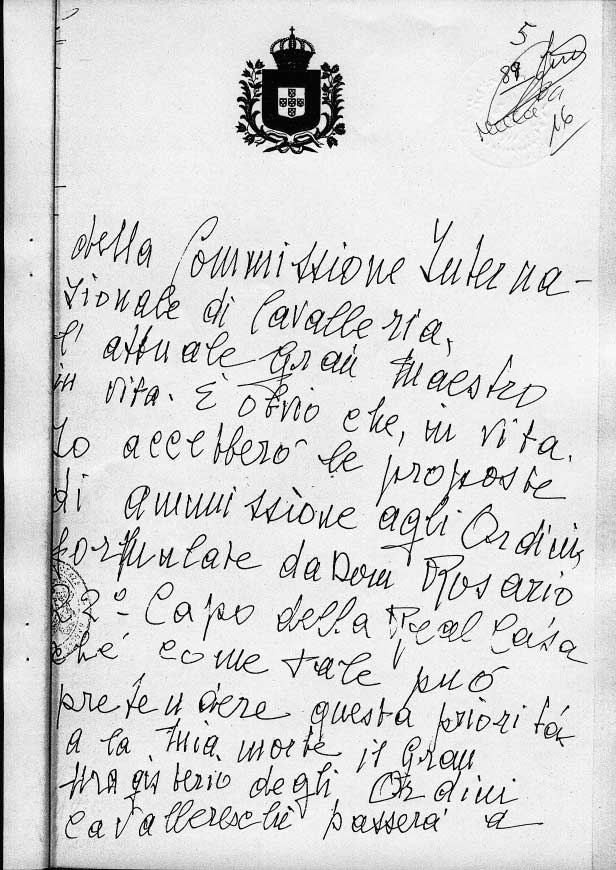 5
89
16
della Commissione Interna-
zionale di Cavalleria,
l'attuale Gran Maestro
in vita. È obvio che, in vita.
Io accetteró le proposte
di ammissione agli Ordini,
formulate da Dom Rosario
22º Capo della Real Casa
ché come tale puó
pretendere questa prioritá.
a la mia morte il Gran
magisterio degli Ordini
cavallereschi passerá a